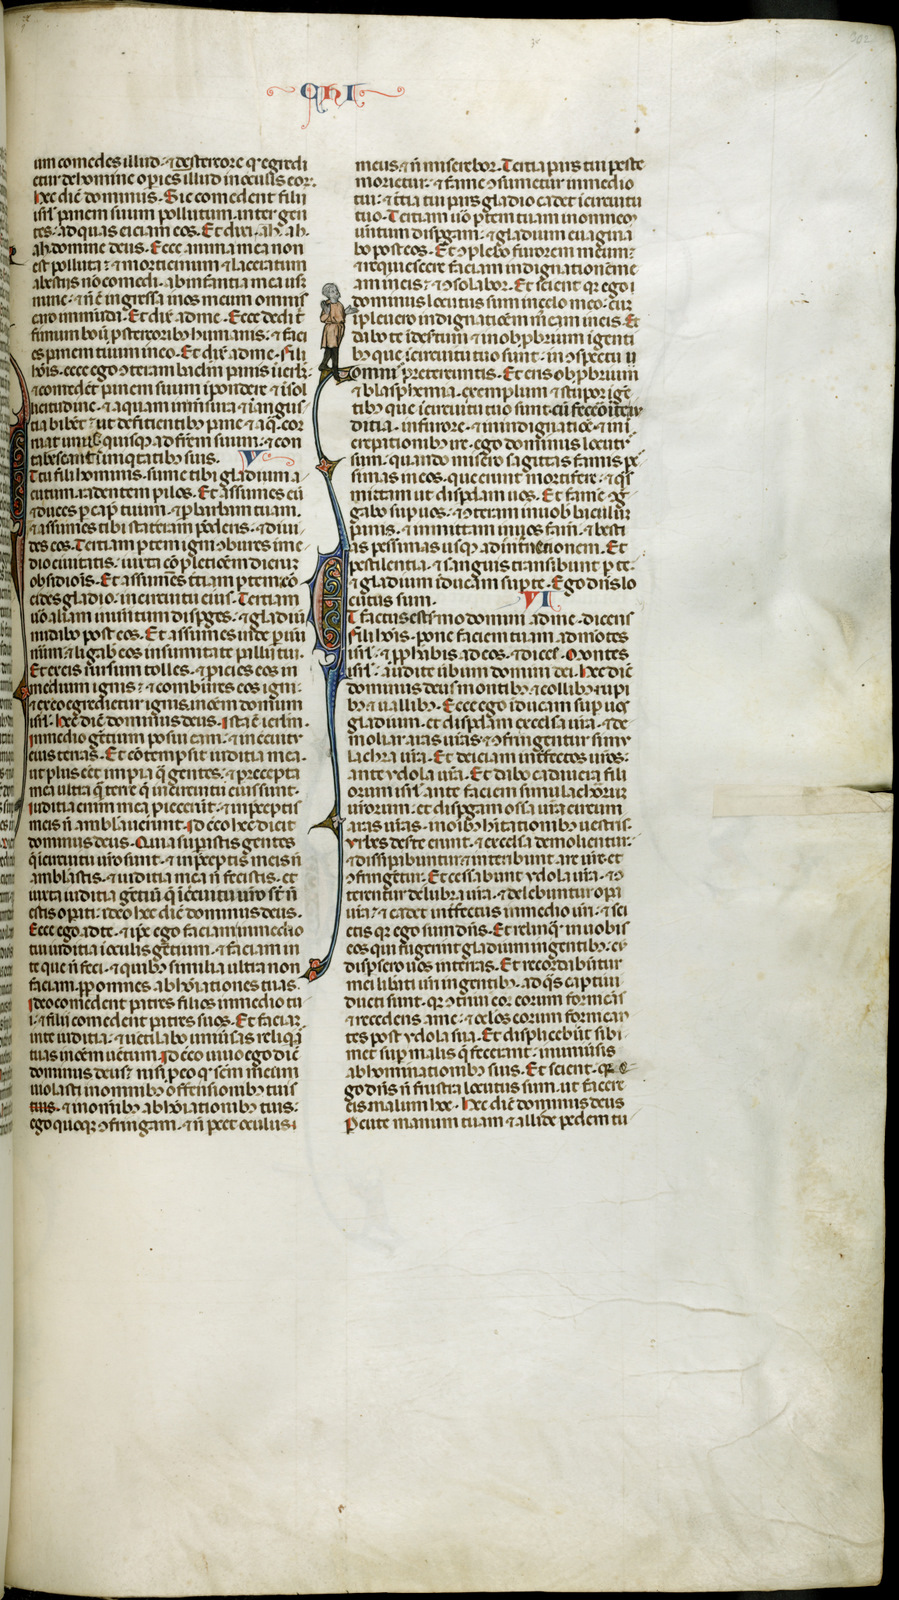 CHI
um comedes illud · ⁊ de stercore q̇ egredi
etur de homine opies illud in oculis eor̛.
hec dic̄ dominus · Sic comedent filii
isrl̄ panem suum pollutum inter gen
tes · ad quas eiciam eos. Et dixi · ah · ah ·
ah domine deus · Ecce anima mea non
est polluta · ⁊ morticinum ⁊ laceratum
a bestiis nō comedi · ab infantia mea usq̛
nunc · ⁊ n̄ ē ingressa in os meum omnis
caro inmunda · Et dix̄ ad me · Ecce dedi t̄
fimum boū p stercorib⁊ humanis · ⁊ faci
es panem tuum in eo · Et dix̄ ad me · Fili
hōis · ecce ego ↄteram baclm̄ panis ī ierl̄m
⁊ comedēt panem suum ī pondere ⁊ ī sol
licitudine · ⁊ aquam in mn̄sura ⁊ ī angus
tia bibēt · ut deficientib⁊ pane ⁊ aq̄ · cor
ruat unusquisq⁊ ad fr̄em suum · ⁊ con
tabescant ī iniqtatib⁊ suis ·
V
Et tu fili hominis · sume tibi gladium a
cutum radentem pilos · Et assumes eū
⁊ duces p cap̄ tuum · ⁊ p barbam tuam ·
⁊ assumes tibi stateram pōderis · ⁊ diui
des eos. Tertiam ptem igni ↄbures in me
dio ciuitatis · iuxta cōpletiōem dierum
obsidiōis · Et assumēs t̄tiam ptem cō
cides gladio · in circuitu eius · Tertiam
uō aliam in uentum disperges · ⁊ gladiū
nudabo post eos · Et assumes inde paruū
num̄ · ⁊ ligab̄ eos in summitate pallii tui ·
Et ex eis rursum tolles · ⁊ proicies eos in
medium ignis · ⁊ combures eos igni ·
⁊ ex eo egredietur ignis in oēm domum
isrl̄ · hec dic̄ dominus deus · ista ē ierl̄m ·
in medio gētium posui eam · ⁊ in circuitu
eius terras · Et cōtempsit iuditia mea ·
ut plus eēt impia q̄ gentes · ⁊ precepta
mea ultra q̄ terre q̄ in circuitu eius sunt ·
iuditia enim mea proiecerūt · ⁊ in p̄ceptis
meis n̄ ambulauerunt · Idcirco hec dicit
dominus deus · Quia supastis gentes
q̄ in circuitu uro sunt · ⁊ in p̄ceptis meis n̄
ambulastis · ⁊ iuditia mea n̄ fecistis · et
iuxta iuditia gētiū q̄ ī circuitu uro st̄ n̄
estis opati · ideo hec dic̄ dominus deus ·
Ecce ego ad te · ⁊ ipe ego faciam in medio
tui iuditia ī oculis gētium · ⁊ faciam in
te que n̄ feci · ⁊ quib⁊ similia ultra non
faciam · pp omnes abhoīationes tuas ·
Ideo comedent patres filios in medio tu
i · ⁊ filii comedent patres suos · Et faciam
in te iuditia · ⁊ uentilabo uniūsas reliqas
tuas in oēm uentum · Idcirco uiuo ego dic̄
dominus deus · nisi p eo q̇ scm̄ meum
uiolasti in omnib⁊ offensionib⁊ tuis
tuis · ⁊ in omnib⁊ abhoīationib⁊ tuis ·
ego quoq⁊ ↄfringam · ⁊ n̄ parcet oculus
meus · ⁊ n̄ miserebor · Tertia pars tui peste
morietur · ⁊ fame ↄsumetur in medio
tui · ⁊ t̄tia tui pars gladio cadet ī circuitu
tuo · Tertiam uō ptem tuam in omnem
uentum dispgam · ⁊ gladium euagina
bo post eos · Et ↄplebo furorem meum ·
⁊ requiescere faciam indignationē me
am in eis · ⁊ ↄsolabor · Et scient q̇ ego
dominus locutus sum in zelo meo · cum
ipleuero indignatiōem meam in eis · Et
dabo te ī desertum · ⁊ in obprbrium ī genti
b⁊ que ī circuitu tuo sunt · in ↄspectu
omnis pretereuntis · Et eris obprbrium
⁊ blasphemia · exemplum ⁊ stupor ī gē
tib⁊ que ī circuitu tuo sunt · cū fecō in te iu
ditia · in furore · ⁊ in indignatiōe · ⁊ in ī
crepationib⁊ ire · ego dominus locutus
sum · quando misero sagittas famis pes
simas in eos · que erunt mortifere · ⁊ q̄s
mittam ut dispdam uos · Et famē ↄg
gabo sup uos · ⁊ ↄteram in uob baculum
panis · ⁊ inmittam in uos famē · ⁊ besti
as pessimas usq⁊ ad int̄nectionem · Et
pestilentia · ⁊ sanguis transibunt p te ·
⁊ gladium īducam sup te · Ego dn̄s lo
cutus sum ·
VI
Et factus est smo domini ad me · dicens
Fili hōis · pone faciem tuam ad mōtes
isrl̄ · ⁊ pphabis ad eos · ⁊ dices · Montes
isrl̄ · audite uerbum domini dei · hec dic̄
dominus deus montib⁊ ⁊ collib⁊ · rupi
b⁊ ⁊ uallib⁊ · Ecce ego īducam sup uos
gladium · et dispdam excelsa uīa · ⁊ de
moliar aras uīas · ⁊ ↄfringentur simu
lachra uīa · Et deiciam int̄fectos uīos ·
ante ydola uīa · Et dabo cadauera fili
orum isrl̄ ante faciem simulachrorum
uīorum · et dispgam ossa uīa circum
aras uīas · in oīb⁊ hītationib⁊ uestris ·
Vrbes desē erunt · ⁊ excelsa demolientur ·
⁊ dissipabuntur · ⁊ interibunt are uīe · et
ↄfringētur · Et cessabunt ydola uīa · ⁊ ↄ
terentur delubra uīa · ⁊ delebuntur opa
uīa · ⁊ cadet int̄fectus in medio uīi · ⁊ sci
etis q̇ ego sum dn̄s · Et relinq̄ in uobis
eos qui fugerint gladium in gentib⁊ · cū
dispsero uos in terras · Et recordabūtur
mei liberati uīi in gentib⁊ · ad q̄s captiui
ducti sunt · q̇ ↄtriui cor eorum fornicās
⁊ recedens a me · ⁊ oclos eorum fornican
tes post ydola sua · Et displicebūt sibi
met sup malis q̄ fecerant · in uniūsis
abhominationib⁊ suis · Et scient · q̇ e
go dn̄s n̄ frustra locutus sum · ut facere
eis malum hoc · hec dic̄ dominus deus
Pcute manum tuam ⁊ allide pedem tu